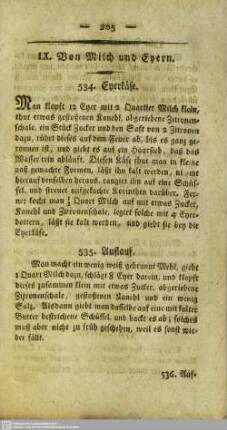 — 205 —
IX. Von Milch und Eyern.
534. Eyerkäse.
Man klopft 12 Eyer mit 2 Quartier Milch klein,
thut etwas gestoßenen Kanehl, abgeriebene Zitronen-
schale, ein Stück Zucker und den Saft von 2 Zitronen
dazu, rühret dieses auf dem Feuer ab, bis es ganz ge-
ronnen ist, und gießt es auf ein Haarsieb, daß das
Wasser rein abläuft. Diesen Käse thut man in kleine
naß gemachte Formen, läßt ihn kalt werden, nimmt
hierauf denselben heraus, rangirt ihn auf eine Schüs-
sel, und streuet aufgekochte Korinthen darüber. Fer-
ner kocht man Quart Milch auf mit etwas Zucker,
Kanehl und Zitronenschale, legirt solche mit 4 Eyer-
dottern, läßt sie kalt werden, und giebt sie bey die
Eyerkäse.
535. Auflauf.
Man macht ein wenig weiß gebrannt Mehl, gießt
1 Quart Milch dazu, schlägt 8 Eyer darein, und klopft
dieses zusammen klein mit etwas Zucker, abgeriebene
Zitronenschale, gestoßenen Kanehl und ein wenig
Salz. Alsdann giebt man dasselbe auf eine mit kalter
Butter bestrichene Schüssel, und backt es ab; solches
muß aber nicht zu früh geschehen, weil es sonst wie-
der fällt.
536. Auf-